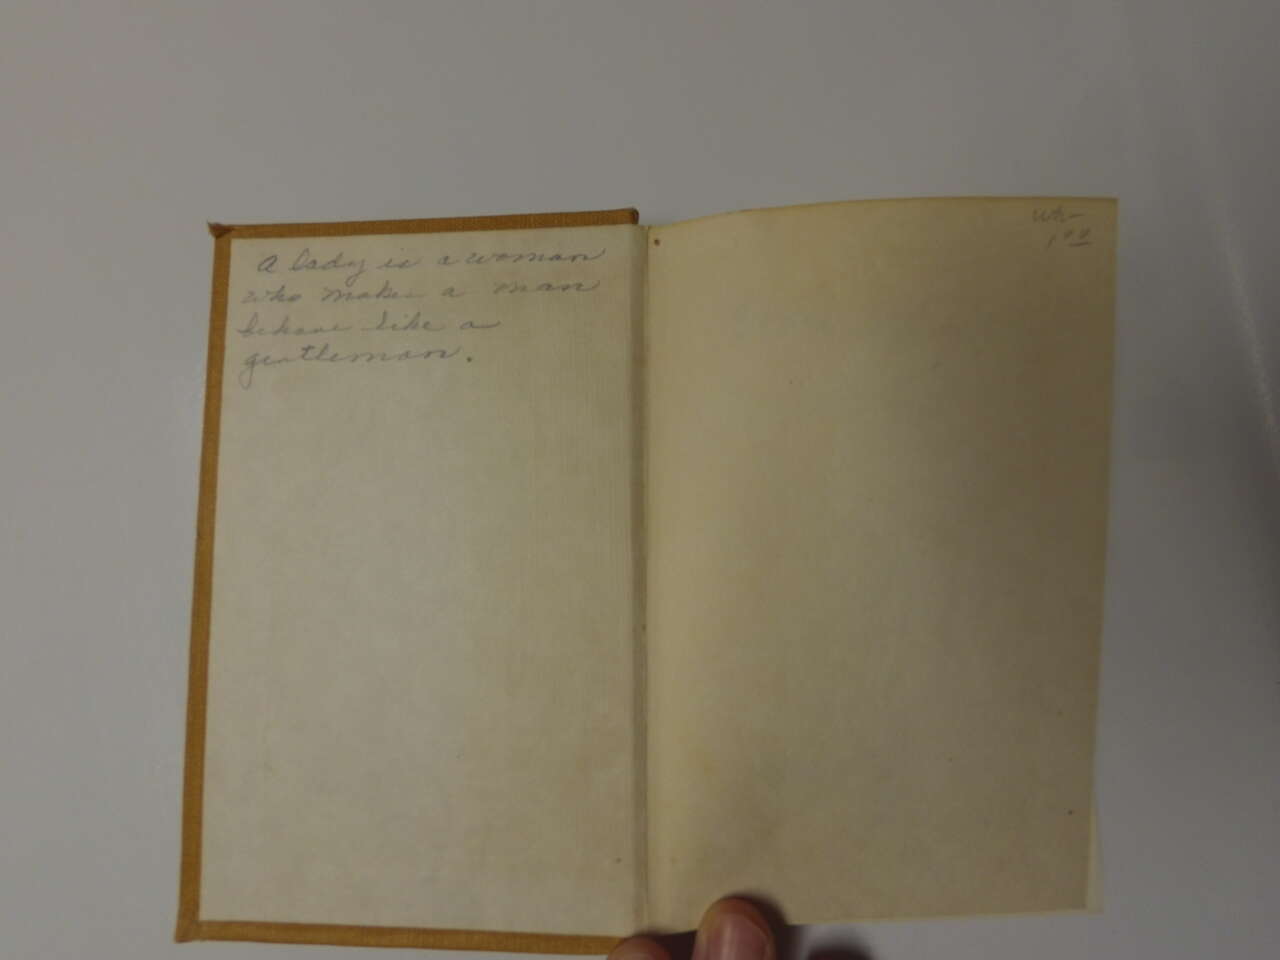 A lady is a woman
who makes a man
behave like a
gentleman.
1 00